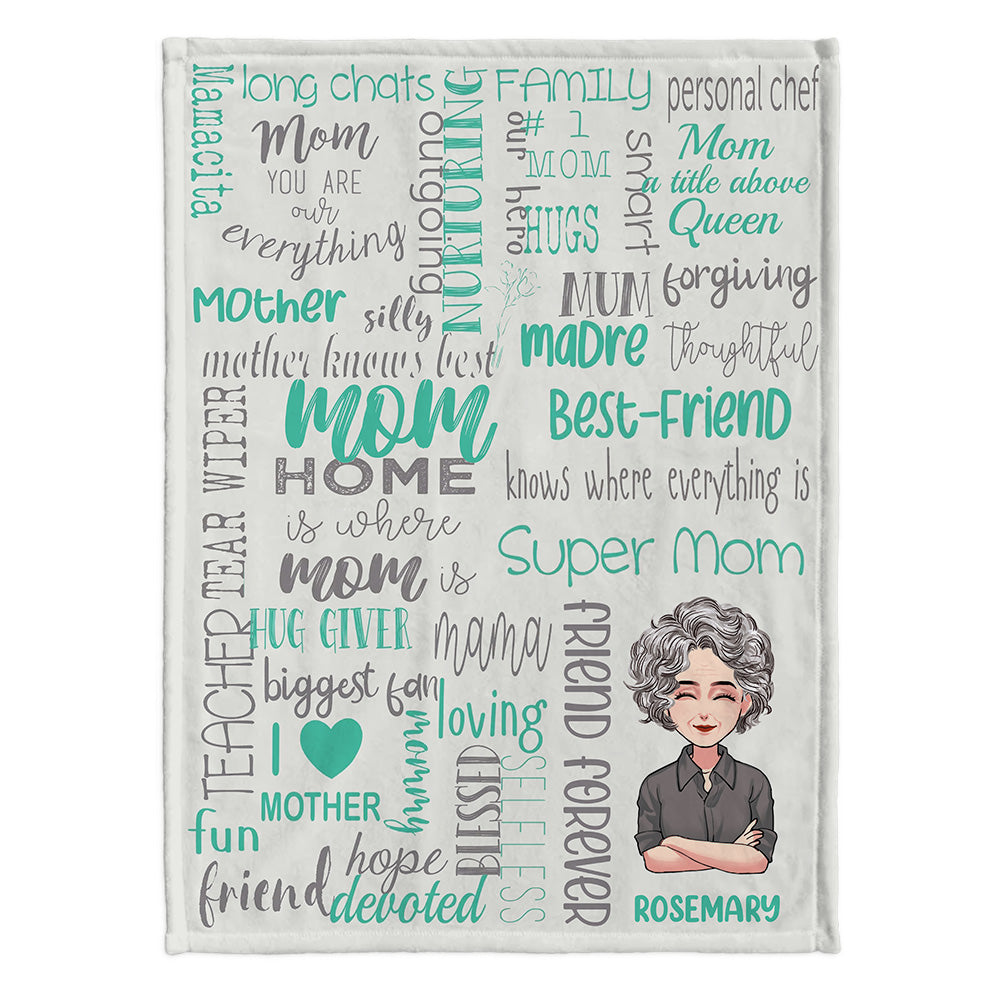 Mamacita
long chats
Mom
YOU ARE
our
everything
outgoing
NURTURING
FAMILY
# 1
MOM
our hero
HUGS
smart
personal chef
Mom
a title above
Queen
Mother
silly
MUM
forgiving
mother knows best
madre
thoughtful
mom
HOME
is where
mom is
Best-Friend
knows where everything is
Super Mom
TEAR WIPER
TEACHER
HUG GIVER
biggest fan
I
MOTHER
mommy
mama
loving
BLESSED
SELFLESS
FRIEND FOREVER
fun
friend
hope
devoted
ROSEMARY